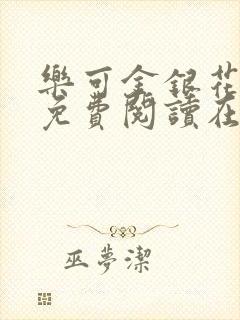 樂可金銀花
免費閱讀在
巫夢潔